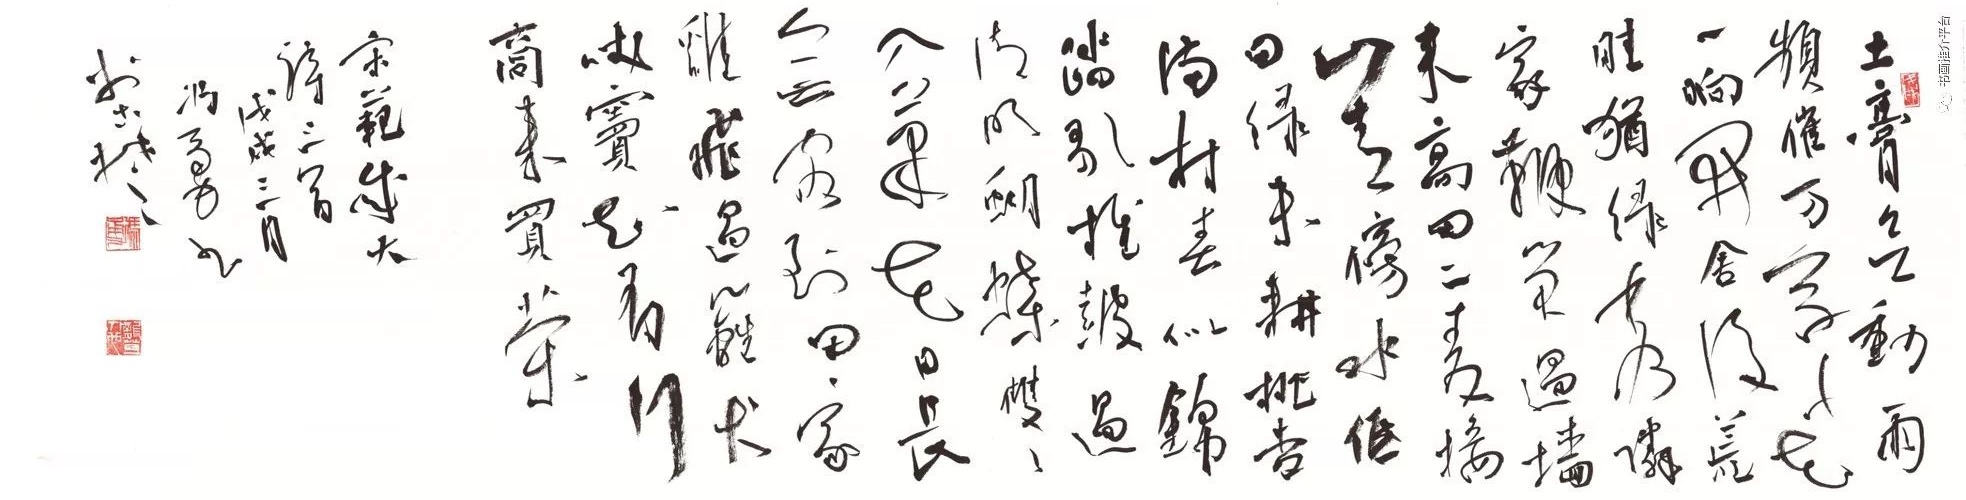 土膏欲動雨
頻催万草千花
一晌開舍後荒
畦猶緑秀隣
家鞭筍過墻
来高田二麦接
山青傍水低
田緑未耕桃杏
滿村春似錦
踏歌椎鼓過
清明蝴蝶雙〻
入菜花日長
無客到田家
雞飛過籬犬
吠竇知有行
商来買茶
宋範成大
詩三首
戊戌三月
馮勇书
书画推介平台